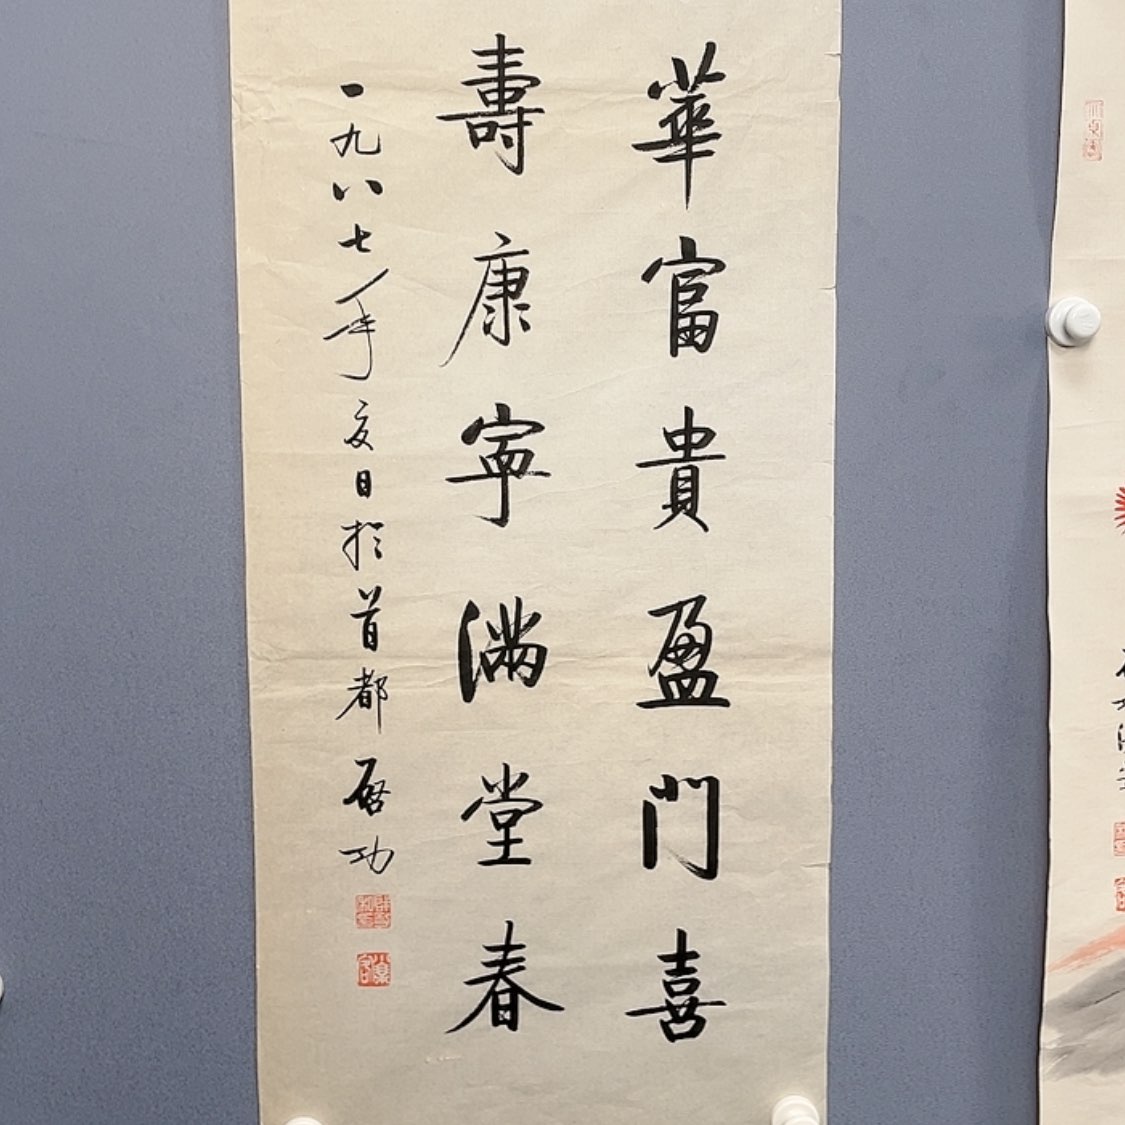 華富貴盈門喜
壽康寧滿堂春
一九八七年夏日於首都 啓功